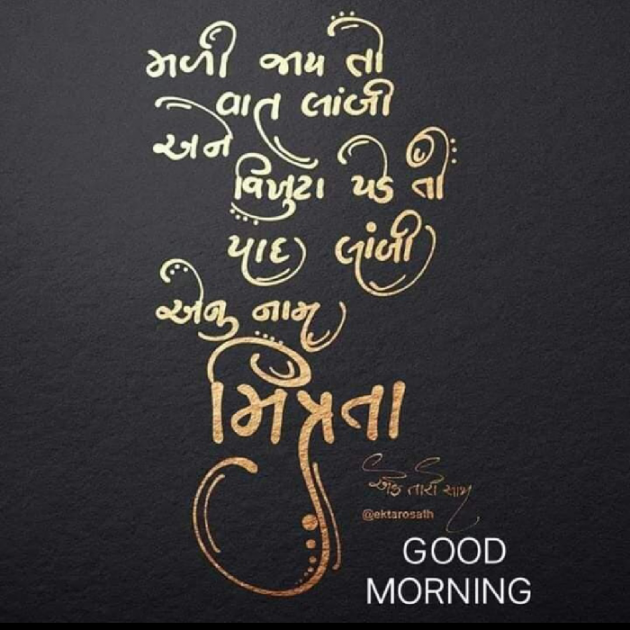 મળી જાય તો
વાત લાંબી
અને
વિખુટા પડે તો
યાદ લાંબી
એનુ નામ
મિત્રતા
એક તારો સાથ
@ektarosath
GOOD
MORNING